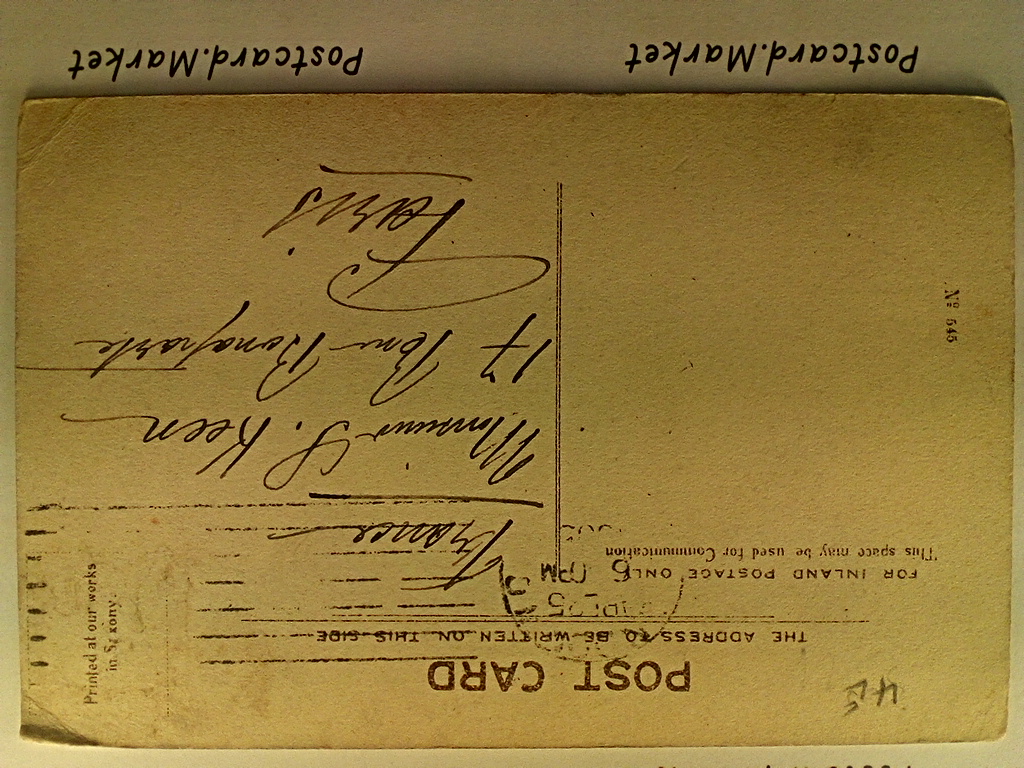 POST CARD
THE ADDRESS TO BE WRITTEN ON THIS SIDE
FOR INLAND POSTAGE ONLY
This space may be used for Communication
6 PM
France
Monsieur S. Keen
17 Bonaparte
Paris
Nº 545
Printed at our works
in Saxony.
Postcard.Market
Postcard.Market